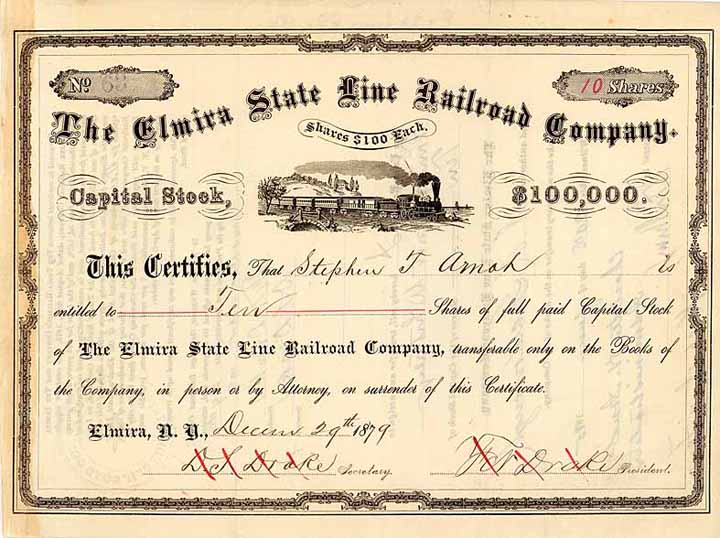 No 63
10 Shares
The Elmira State Line Railroad Company.
Shares $100 Each.
Capital Stock, $100,000.
This Certifies, That Stephen T Arnot is
entitled to Ten Shares of full paid Capital Stock
of The Elmira State Line Railroad Company, transferable only on the Books of
the Company, in person or by Attorney, on surrender of this Certificate.
Elmira, N. Y., Decem 29th 1879
Drake Secretary. Drake President.